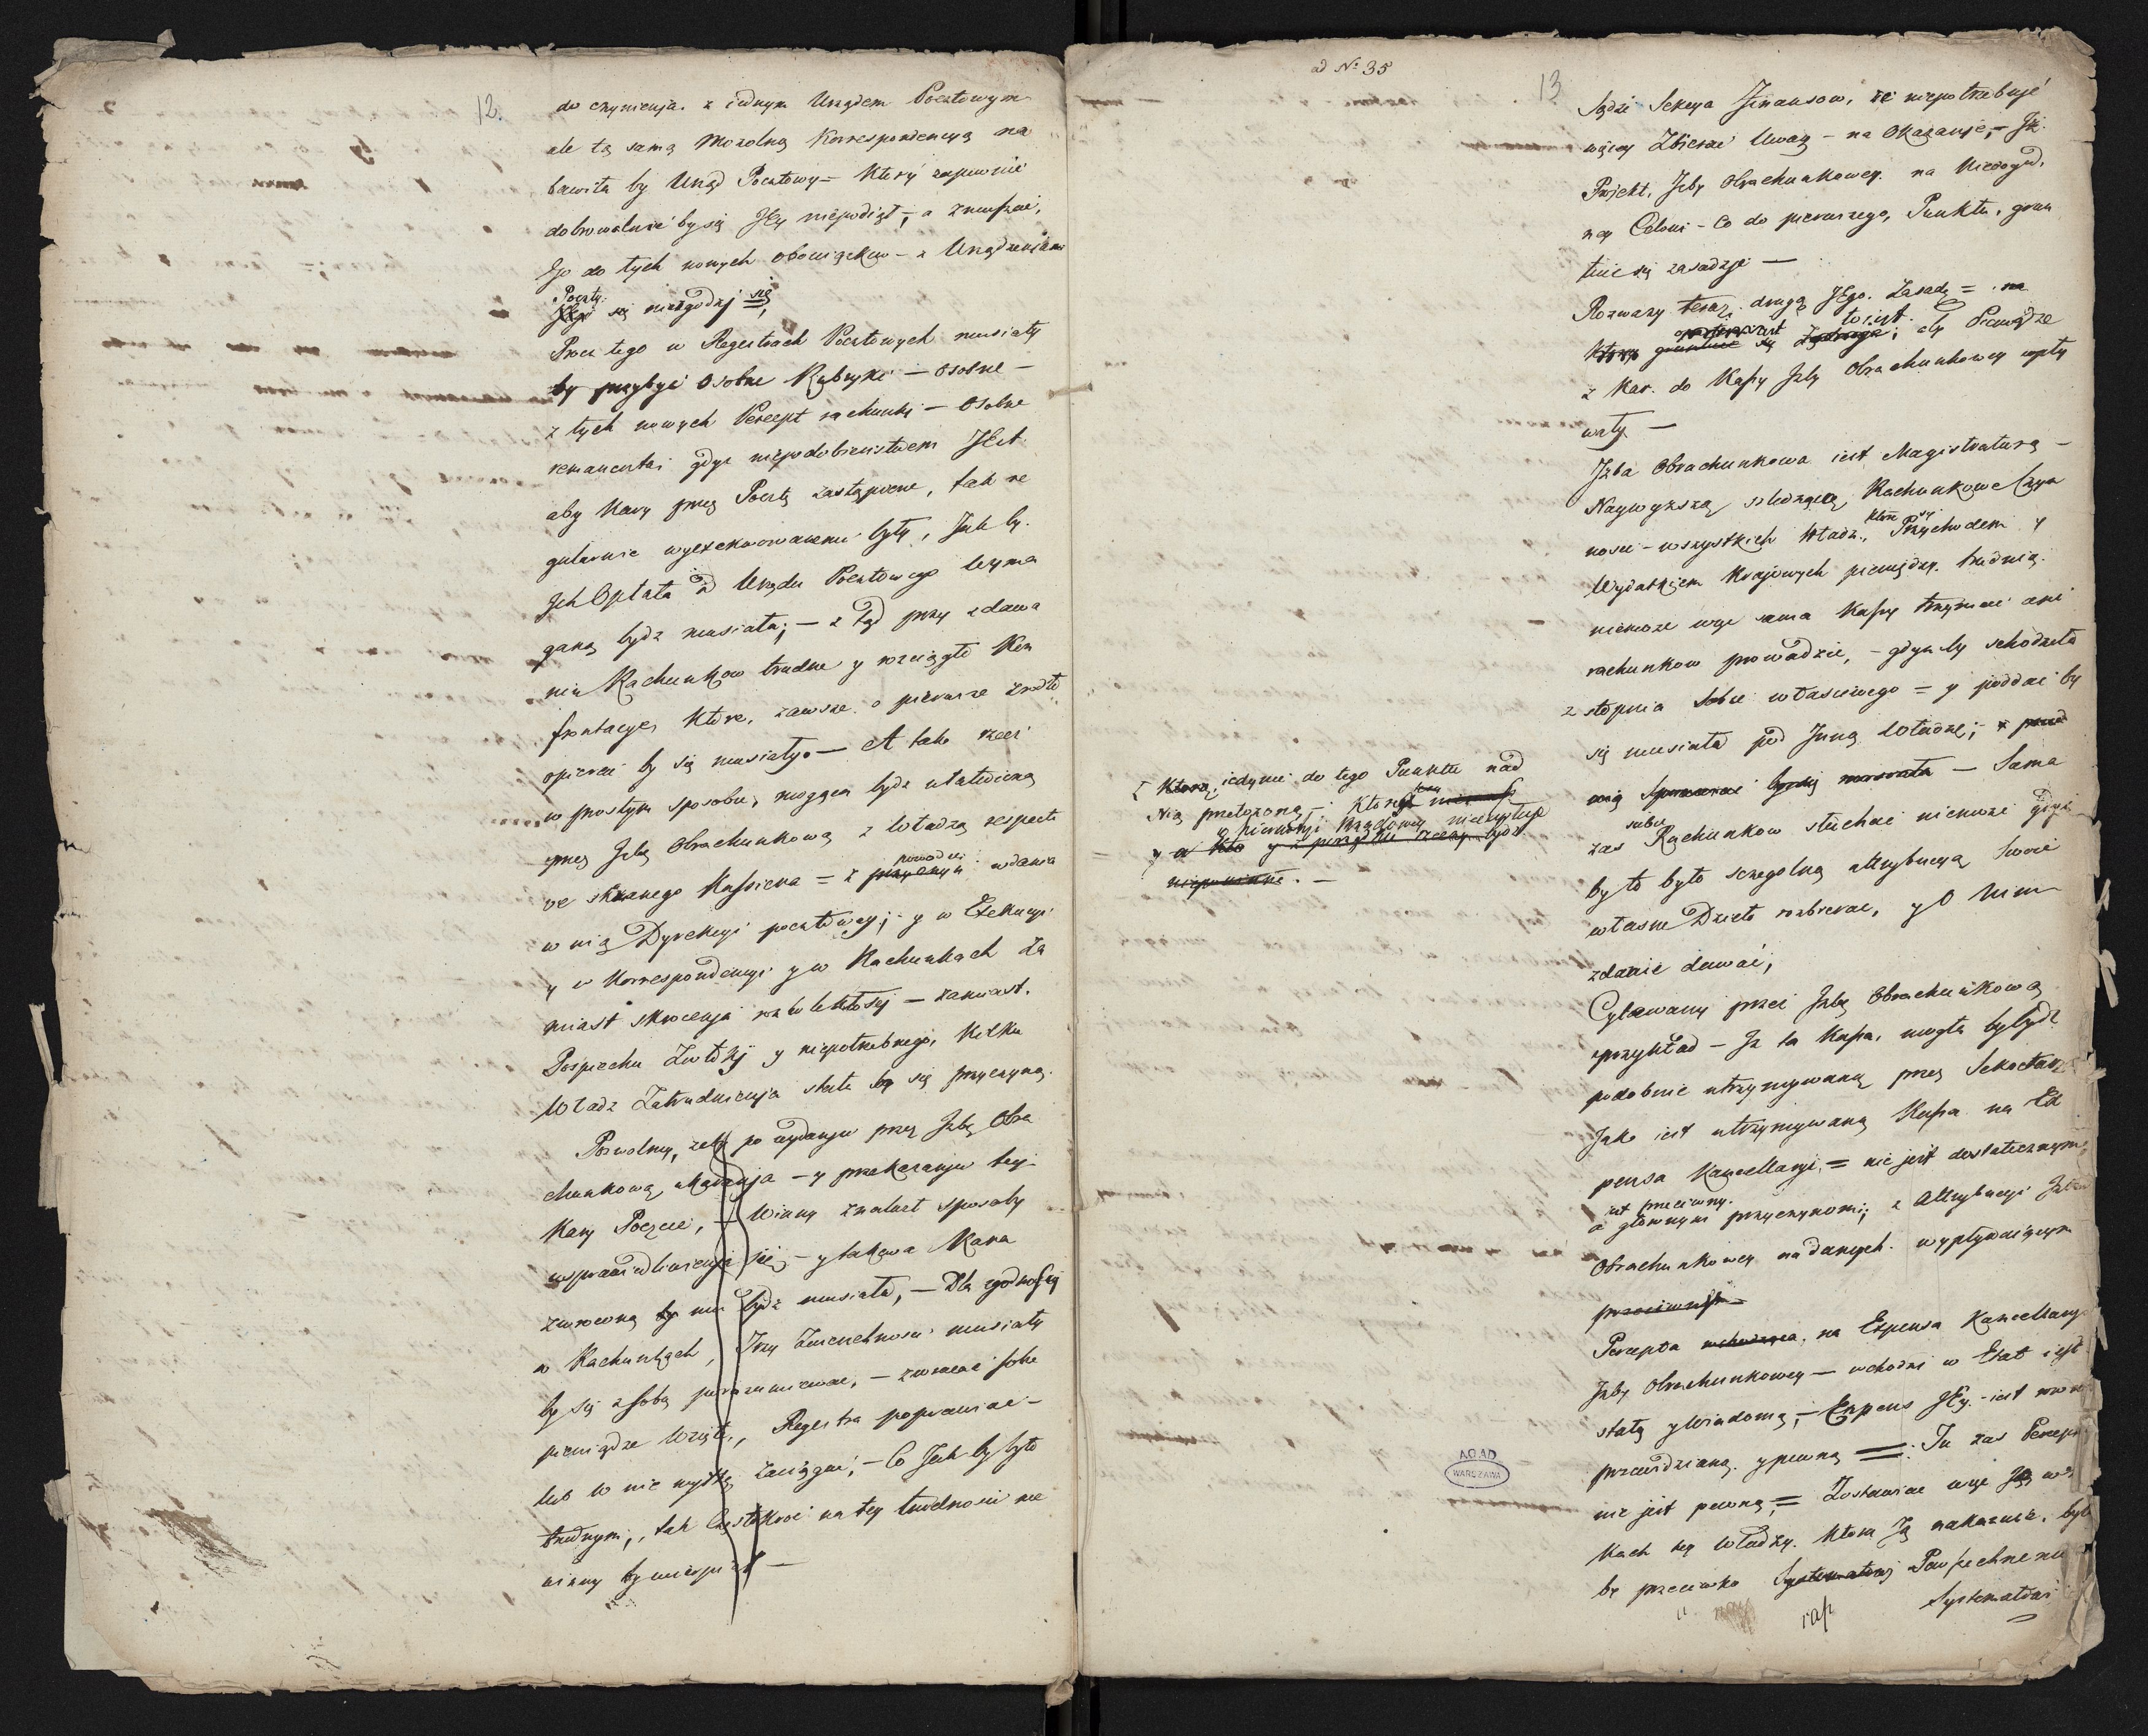 12.
do czynienia. z iednym Urzędem Pocztowym
ale tą samą mozolną Korrespondencyą na
bawiła by Urząd Pocztowy = Ktory zapewnie
dobrowolnie by się Jey niepodiął, – a zmuszać,
Ego do tych nowych obowiązkow – z Urządzeniami
Poczty
się niezgodzi się,
Procz tego w Regestrach Pocztowych musiały
by przybyć osobne Rubryki – osobne –
z tych nowych Percept rachunki – Osobne
remanenta; gdyż niepodobieństwem Jest
aby Kary przez Pocztę zastąpione, tak re
gularnie wyexekwowanemi były, Jak by.
Jch Opłata od Urzędu Pocztowego wyma
ganą bydz musiała; – z tąd przy zdawa
niu Rachunkow trudne y rozciągłe Kon
frontacye, Które, zawsze o pierwsze źrodło
opierać by się musiały. – A tak rzecz
w prostym sposobie, mogąca bydz ułatwioną
przez Jzbę Obrachunkową z Władzą respecti
ve skazanego Kassiera = z przyczyn powodu wdania
w nią Dyrekcyi pocztowey; y w Exekucyi
y w Korrespondencyi y w Rachunkach za
miast skrocenia rozwlekłosci – zamiast.
Pospiechu Zwłoki y niepotrzebnego, Kilku
Władz Zatrudnienia stała by się przyczyną.
Pozwolmy, żeby po wydaniu przez Jzbę Obra
chunkową ukarania – y przekazaniu tey
Kary Poczcie, – Winny znalazł sposoby
usprawiedliwienia się – y takowa Kara
zwroconą by mu bydź musiała, – Dla zgodnosci
w Rachunkach, Trzy Zwierzchnosci musiały
by się z sobą porozumiewac, – zwracać sobie
pieniądze Wzięte, Regestra poprawiac –
lub w nie wydatki zaciągać; – Co Jak by było
trudnym, tak Częstokroć na tey trudnosci nie
winny by ucierpiał –
ad No 35
13
Sądzi Sekcya Finansow, że niepotrzebuje
więcey Zbierać Uwag – na Okazanie, – Jż.
Projekt, Jzby Obrachunkowey. na Niedogod.
ney Osłoni – Co do pierwszego, Punktu, grun
tuie się zasadzie –
Rozważy teraz drugą Jego. Zasadę = na
Ktorey gruntuie się to iest; aby Pieniądze
z Kar. do Kassy Jzby Obrachunkowey wpły
wały –
Jzba Obrachunkowa iest Magistraturą –
Naywyższą, sledzącą Rachunkowe Czyn
nosci – wszystkich Władz, Które się Przychodem y
Wydatkiem Krajowych pieniędzy. trudnią.
niemoze więc sama Kassy trzymać ani
rachunkow prowadzic, – gdyz by schodziła
z stopnia Sobie właściwego = y poddać by
się musiała pod Jnną Władzę; y przed
nią Sprawiać by się musiała – Sama
zas siebie Rachunkow słuchać niemoże gdyż
by to było sczegolną attrybucyą Swoie
własne Dzieło rozbierac, y O Nim
zdanie dawać,
Cytowany przez Jzbę Obrachunkową
przykład – Jż ta Kassa, mogła by bydz
podobnie utrzymywaną przez Sekretarza
Jako iest utrzymywaną Kassa na Ex
pensa Kancellaryi, = nie jest dostatecznym,
a iest przeciwny głownym przyczynom; z Attrybucyi Jzbie
Obrachunkowey nadanych. wypływaiącym
przeciwnym –
Percepta wchodząca. na Expensa Kancellaryi
Jzby Obrachunkowey – wchodzi w Etat iest
stałą y Wiadomą, – Expens Jey. – iest row
przewidzianą. y pewną =. Tu zas Percepta
nie jest pewną, = Zostawiac więc Ją w rę
Kach tey Władzy. Ktora Ją nakazuie, było
by przeciwko Systematowi Powszechnemu
Systematowi
[ Którą, iedynie do tego Punktu nad
Nią przełożoną, –
y w hierarchyi Rządowey nieexystuje
y a Kto
niepowinna. –
AGAD
WARSZAWA